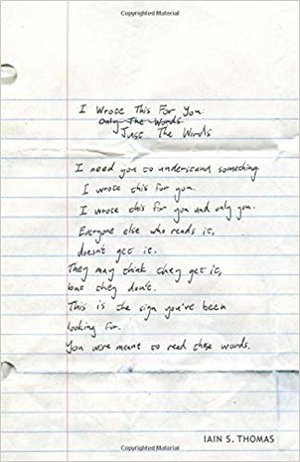 Copyrighted Material
I Wrote This For You
Only The Words
Just The Words
I need you to understand something.
I wrote this for you.
I wrote this for you and only you.
Everyone else who reads it,
doesn't get it.
They may think they get it,
but they don't.
This is the sign you've been
looking for.
You were meant to read these words.
IAIN S. THOMAS
Copyrighted Material